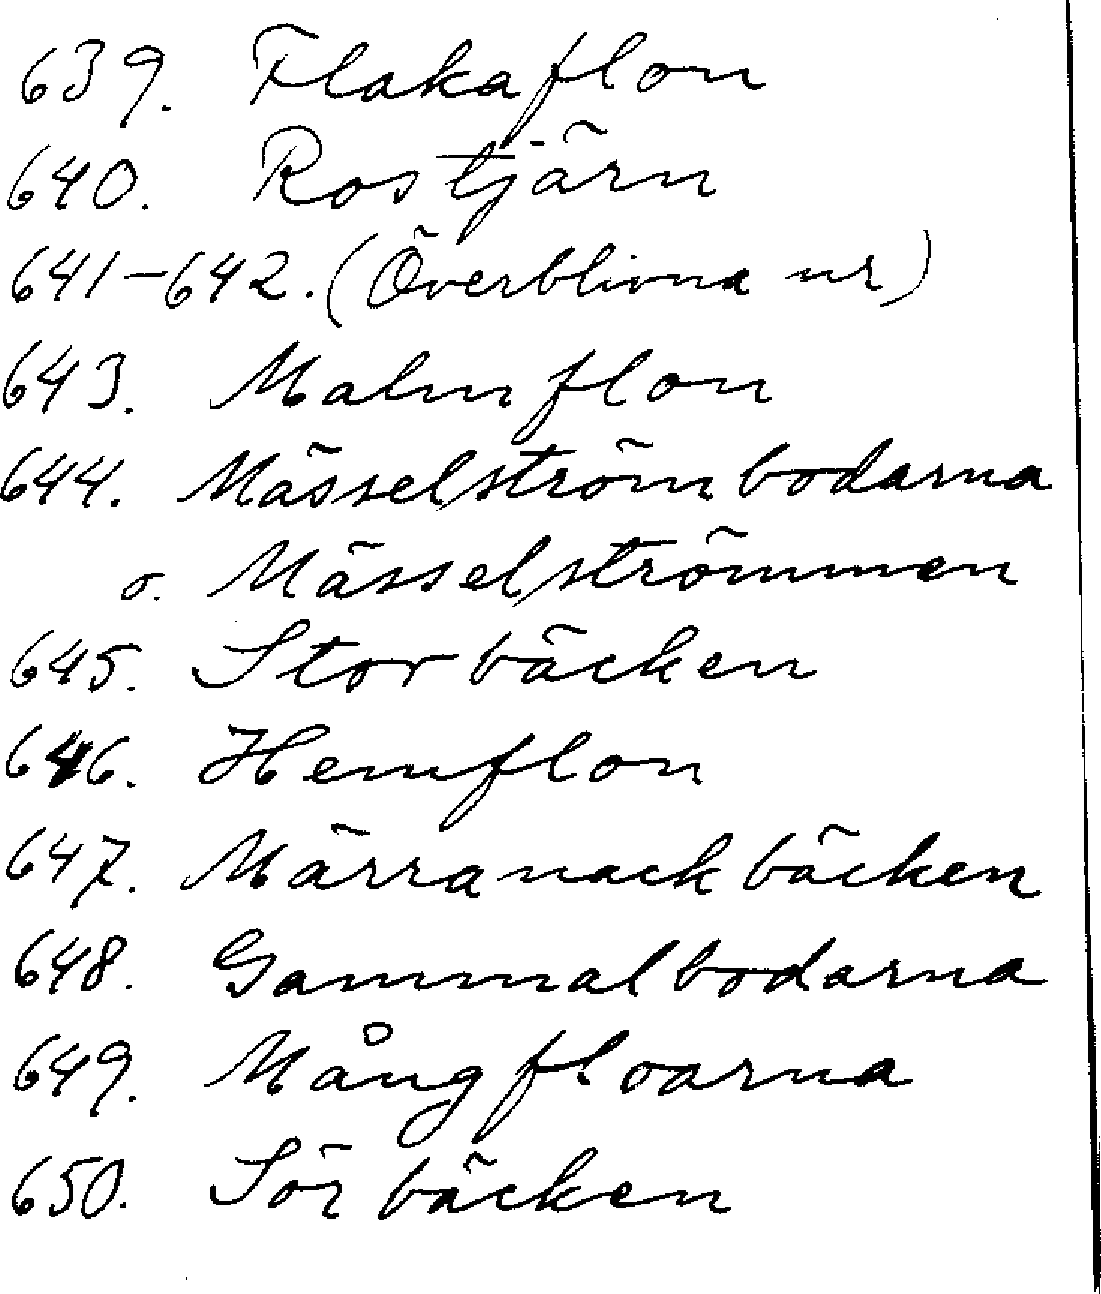 639. Flakaflon
640. Rostjärn
641-642. (Överblivna nr)
643. Malmflon
644. Mässelströmbodarna
o. Mässelströmmen
645. Storbäcken
646. Hemflon
647. Märranackbäcken
648. Gammalbodarna
649. Mångfloarna
650. Sörbäcken